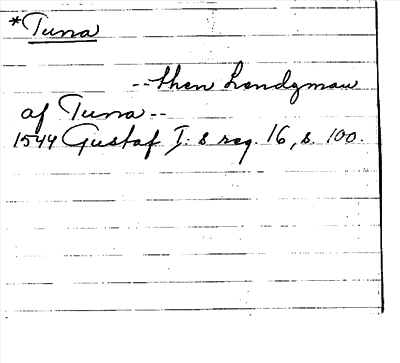 *Tuna
-- then Lendzman
af Tuna --
1544 Gustaf I:s reg. 16, s. 100.